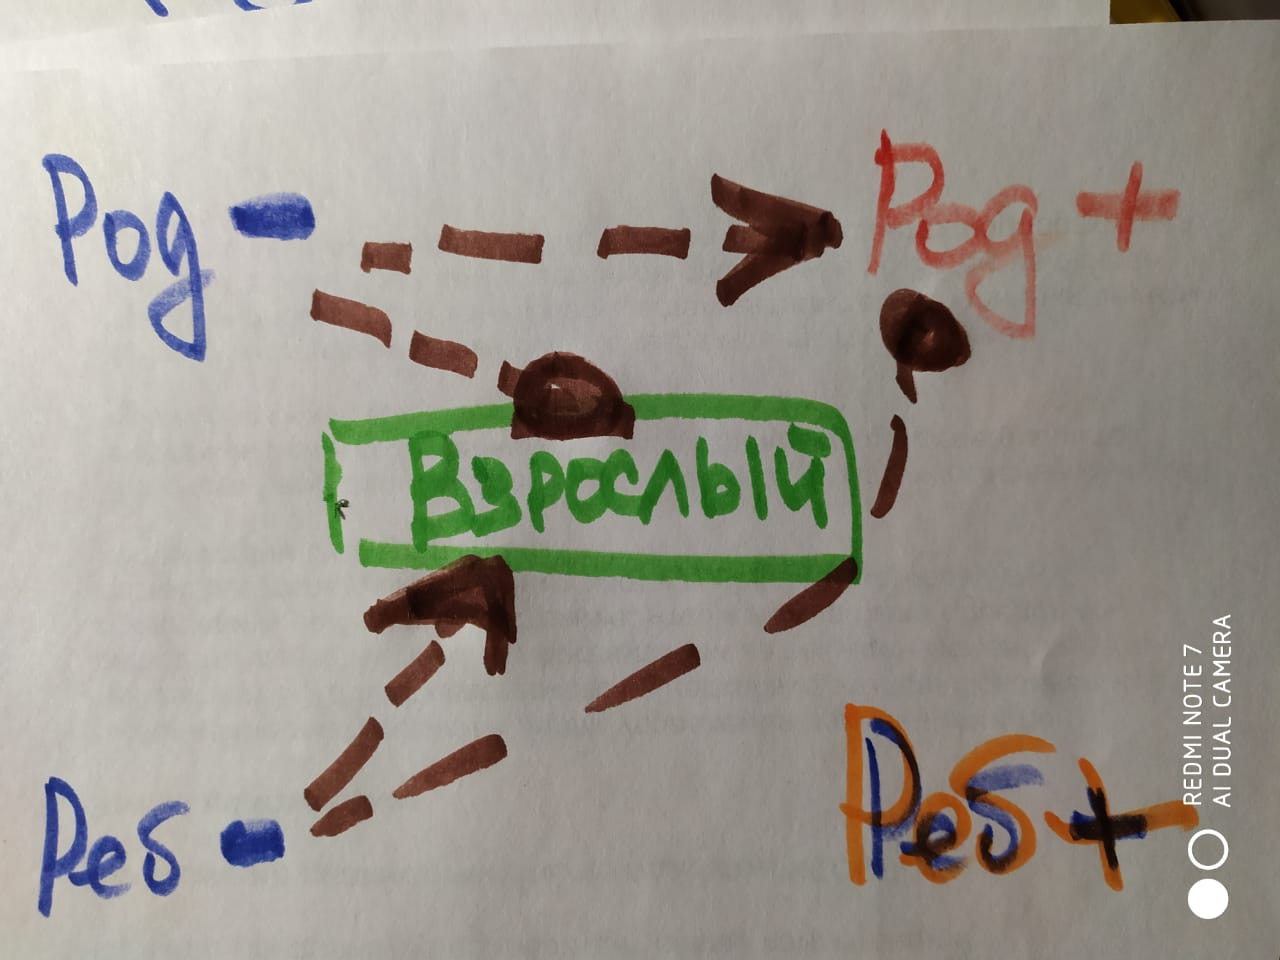 Род - Род +
Взрослый
Реб - Реб +
REDMI NOTE 7
AI DUAL CAMERA